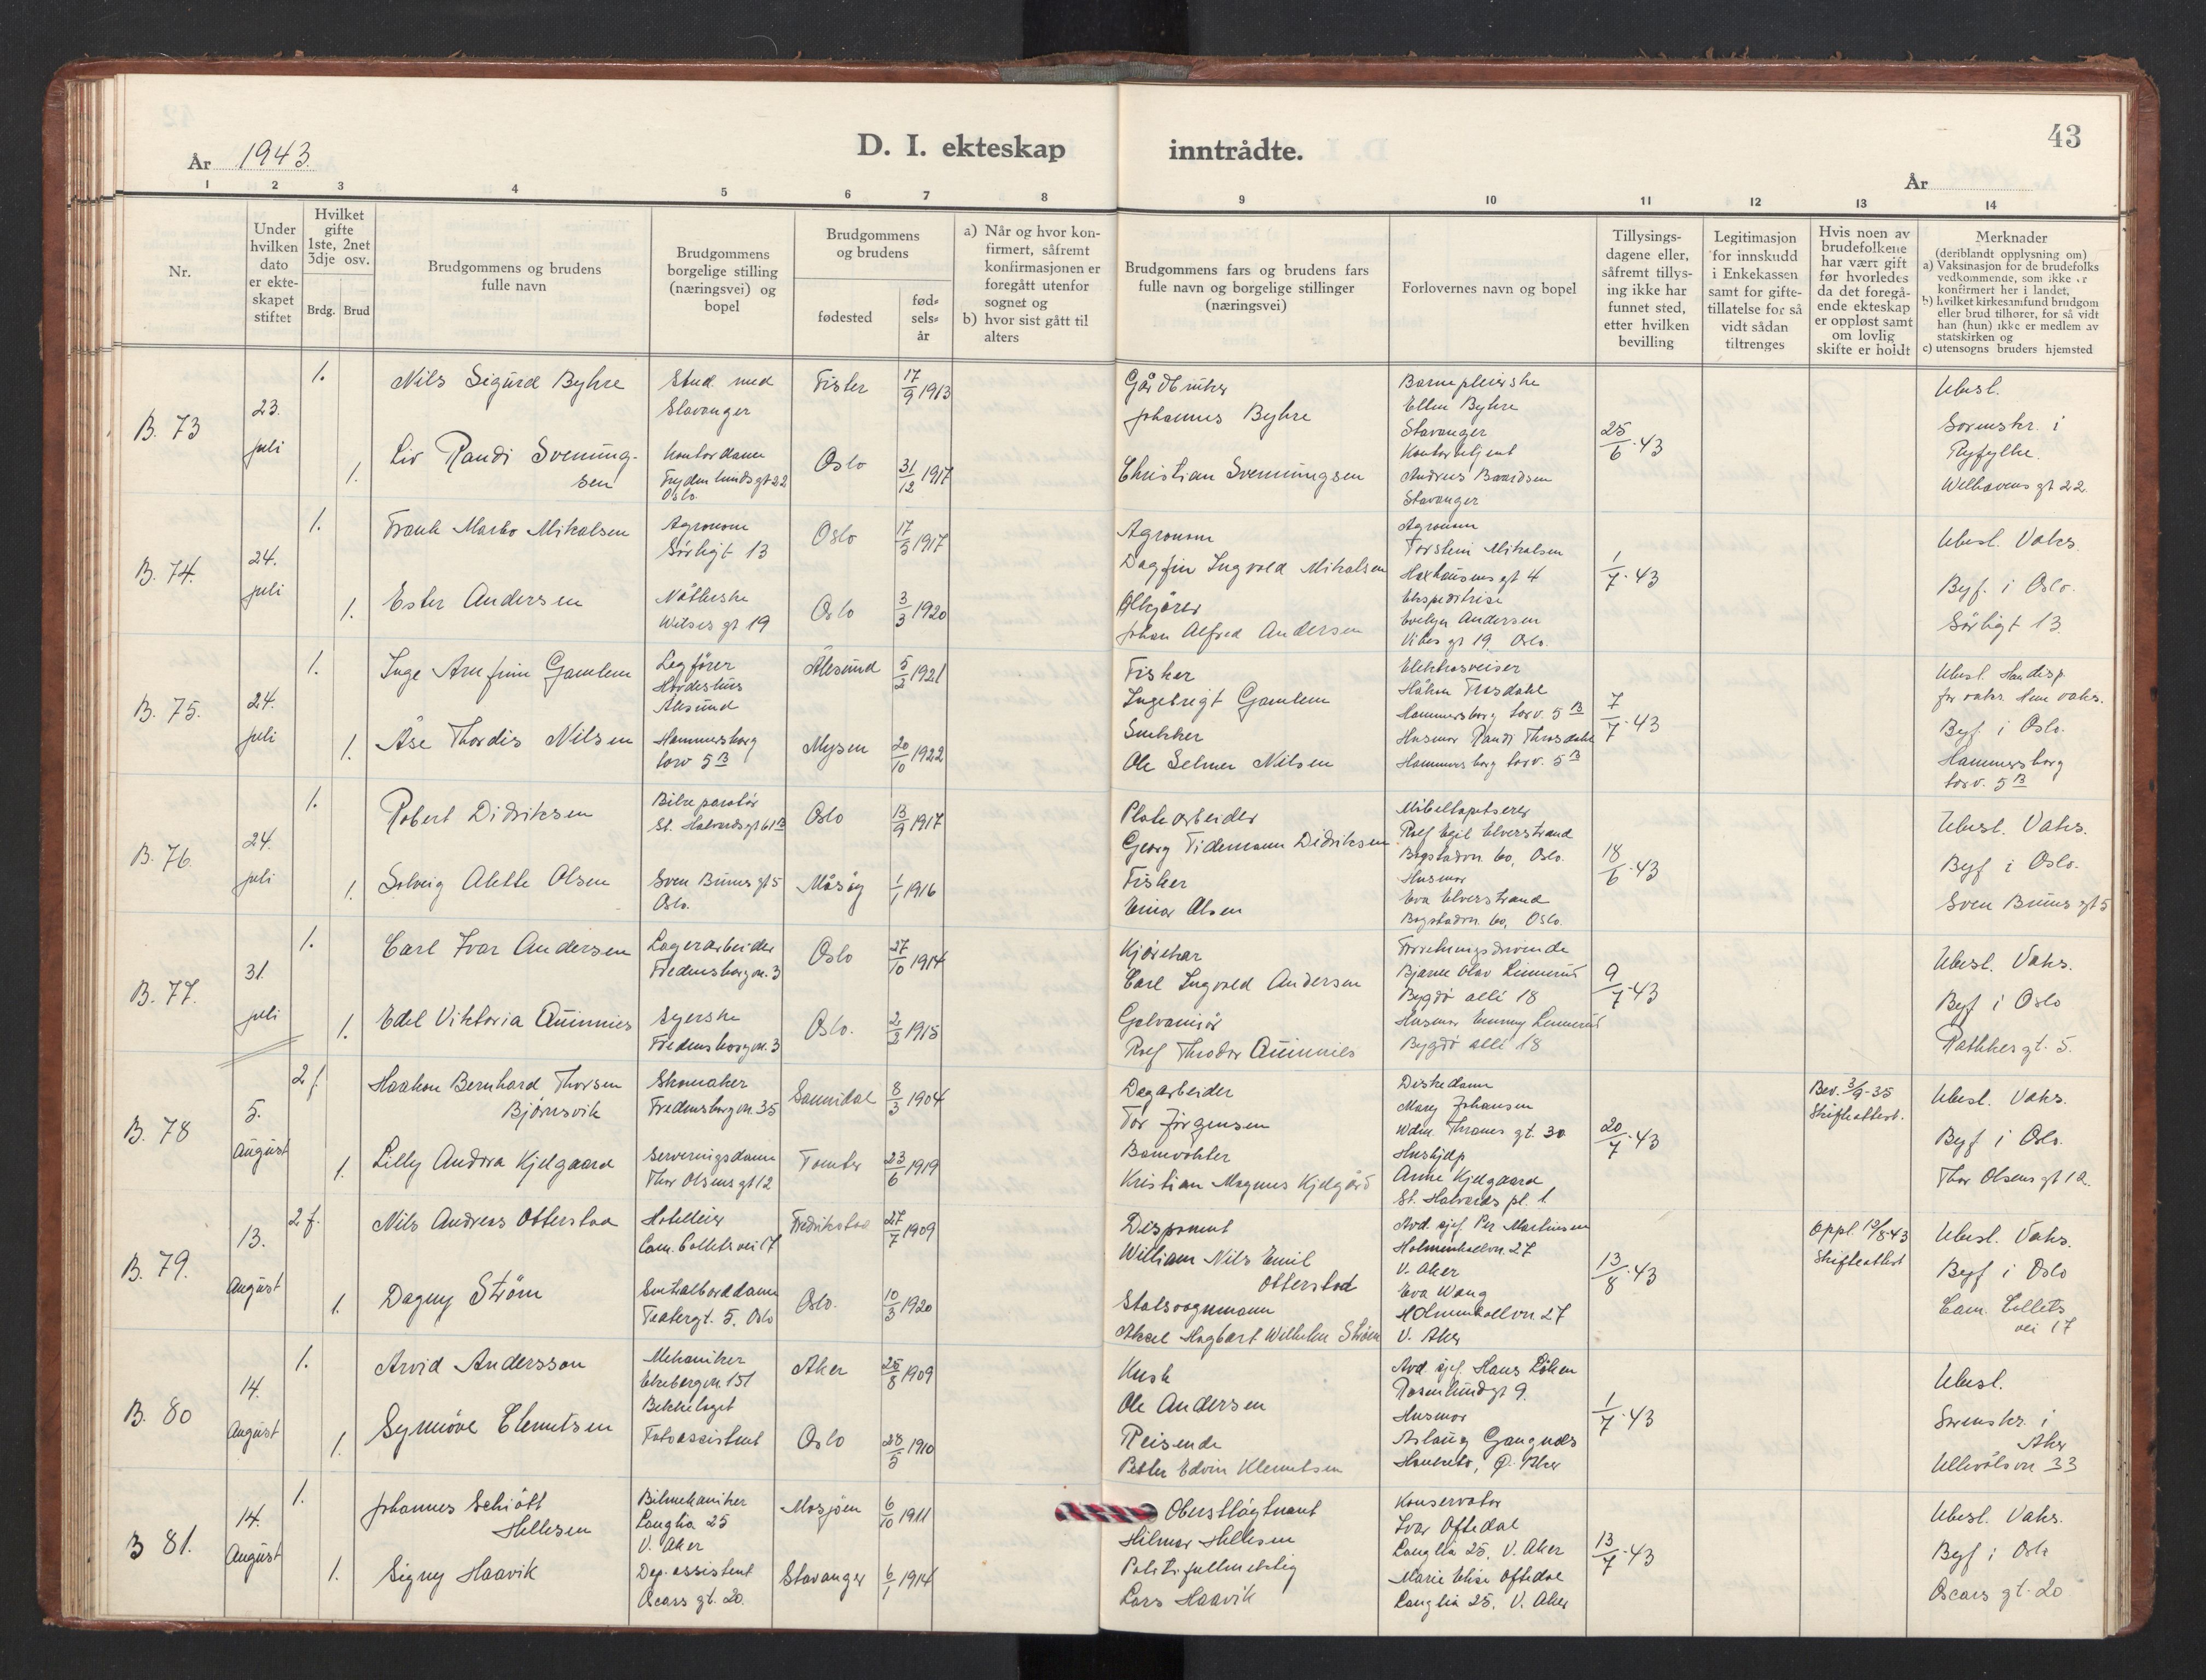 43
År 1943.
D. I. ekteskap inntrådte.
År
1 2 3 4 5 6 7 8 9 10 11 12 13 14
Nr.
Under hvilken dato er ekte-skapet stiftet
Hvilket gifte 1ste, 2net 3dje osv.
Brdg. Brud
Brudgommens og brudens fulle navn
Brudgommens borgelige stilling (næringsvei) og bopel
Brudgommens og brudens
fødested
fød-sels-år
a) Når og hvor kon-firmert, såfremt konfirmasjonen er foregått utenfor sognet og
b) hvor sist gått til alters
Brudgommens fars og brudens fars fulle navn og borgelige stillinger (næringsvei)
Forlovernes navn og bopel
Tillysings-dagene eller, såfremt tillys-ing ikke har funnet sted, etter hvilken bevilling
Legitimasjon for innskudd i Enkekassen samt for gifte-tillatelse for så vidt sådan tiltrenges
Hvis noen av brudefolkene har vært gift før hvorledes da det foregå-ende ekteskap er oppløst samt om lovlig skifte er holdt
Merknader
(deriblandt opplysning om)
a) Vaksinasjon for de brudefolks vedkommende, som ikke er konfirmert her i landet,
b) hvilket kirkesamfund brudgom eller brud tilhører, for så vidt han (hun) ikke er medlem av statskirken og
c) utensogns bruders hjemsted
B. 73
23. juli
1.
Nils Sigurd Byhre
Stud med
Stavanger
Fister
17/9 1913
Gårdbruker
Johannes Byhre
Barnepleierske
Ellen Byhre
Stavanger
25/6-43
Ubesl.
Sorenskr. i
Ryfylke.
Welhavens gt 22.
1.
Liv Randi Svenning-
sen
Kontordame
Frydenlundsgt 22
Oslo.
Oslo
31/12 1917
Christian Svenningsen
Andreas Baardsen
Stavanger
B. 74.
24. juli
1.
Frank Marbo Mikalsen
Agronom
Sörligt 13
Oslo
17/5 1917
Agronom
Dagfin Ingvald Mikalsen
Agronom
Torstein Mikalsen
Haxthausens gt 4
1/7-43
Ubesl. Vaks.
Byf. i Oslo.
Sörligt 13.
1.
Ester Andersen
Wilses gt 19
Oslo
3/3 1920
Ølkjører
Johan Alfred Andersen
Ekspeditrise
Evelyn Andersen
Vibes gt 19. Oslo.
B. 75.
24. juli
1.
Inge Arnfinn Gamlem
Legfører
Ålesund
Ålesund
5/2 1921
Fisker
Ingebrigt Gamlem
Elektrosveiser
Håkon Trosdahl
Hammersborg torv. 5 B
7/7-43
Ubesl. Han disp.
for vaks. Hun vaks.
Byf i Oslo.
Hammersborg
torv. 5 B
1.
Åse Thordis Nilsen
Hammersborg
torv 5 B
Mysen
20/10 1922
Snekker
Ole Selmer Nilsen
Husmor Randi
Hammersborg torv. 5 B
B. 76.
24. juli
1.
Robert Didriksen
Bilreparatör
St. Halvardsgt 61 B
Oslo
13/9 1917
Platearbeider
Georg Tidemann Didriksen
Möbeltapetserer
Rolf Egil Elverstrand
Bogstadvn. 60, Oslo.
18/6-43
Ubesl. Vaks.
Byf i Oslo.
Sven Bruns gt 5
1.
Solveig Alette Olsen
Sven Bruns gt 5
Oslo.
Måsøy
1/1 1916
Fisker
Einar Olsen
Husmor
Eva Elverstrand
Bogstadvn. 60, Oslo.
B. 77.
31. juli
1.
Carl Ivar Andersen
Lagerarbeider
Fredensborgvn. 3
Oslo
27/10 1914
Kjörekar
Carl Ingvald Andersen
Forretningsdrivende
Bjarne Olav Linnerud
Bygdö allé 18
9/7-43
Ubesl. Vaks.
Byf i Oslo
Rathkes gt. 5.
1.
Edel Viktoria Quinnies
Syerske
Fredensborgvn. 3
Oslo.
2/2 1915
Galvanisör
Rolf Theodor Quinnies
Husmor Emmy Linnerud
Bygdö allé 18
B. 78
5. August
2 f
Haakon Bernhard Thorsen
Bjørnsvik
Skomaker
Fredensborgvn. 35
Sannidal
8/3 1904
Dagarbeider
Tor Jörgensen
Diskedame
Mary Johansen
Wdm. Thranes gt. 30
20/7-43
Bev. 3/9-35
Skifteattest.
Ubesl. Vaks.
Byf i Oslo.
Thor Olsens gt 12.
1.
Lilly Andrea Kjelgaard
Serveringsdame
Thor Olsens gt 12
Tomter
23/6 1919
Banevokter
Kristian Magnus Kjelgård
Hushjelp
Anne Kjelgaard
St. Halvards pl. 1
B. 79.
13. August
2 f.
Nils Andreas Otterstad
Hotelleier
Cam. Colletts vei 17
Fredrikstad
27/7 1909
Disponent
William Nils Emil
Otterstad
Avd. sjef. Per Martinsen
Holmenkollvn. 27
V. Aker
13/8-43
Oppl. 12/8-43
Skifteattest
Ubesl. Vaks.
Byf i Oslo
Cam. Colletts
vei 17
1.
Dagny Ström
Sentralborddame
Teatergt. 5. Oslo
Oslo.
10/3 1920
Statsvognmann
Aksel Hagbart Wilhelm Ström
Eva Wang
Holmenkollvn 27
V. Aker
B. 80
14. August
1.
Arvid Andersson
Mekaniker
Ekebergvn. 151
Bekkelaget
Aker
25/8 1909
Kusk
Ole Andersen
Avd. sjef. Hans Löken
Rosenlundgt 9.
1/7-43
Ubesl.
Sorenskr. i
Aker
Ullevålsvn 33
1.
Synnöve Clemetsen
Fotoassistent
Oslo
28/5 1910
Reisende
Petter Edvin Klemetsen
Husmor
Aslaug Gangnæs
Hauketo, Ø. Aker
B 81.
14. August
1.
Johannes Schiött
Hellesen
Bilmekaniker
Langlia 25
V. Aker
Mosjøen
6/10 1911
Oberstløytnant
Hilmar Hellesen
Konservator
Ivar Oftedal
Langlia 25, V. Aker
13/7-43
Ubesl. Vaks.
Byf i Oslo
Oscars gt. 20
1.
Signy Haavik
Dep. assistent
Oscars gt. 20.
Stavanger
6/1 1914
Politifullmektig
Lars Haavik
Marie Elise Oftedal
Langlia 25, V. Aker